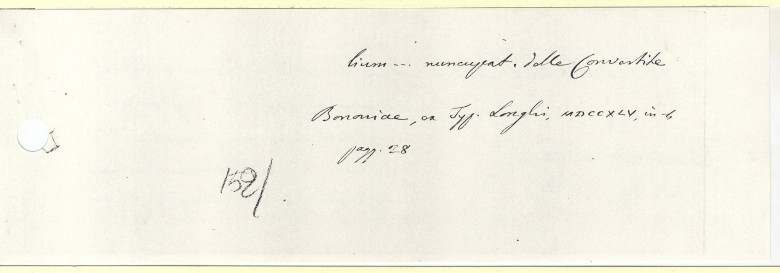 lium --- nuncupat. delle Convertite
Bononiae, ex Typ. Longhi, MDCCXLV, in-6
pagg. 28
152/